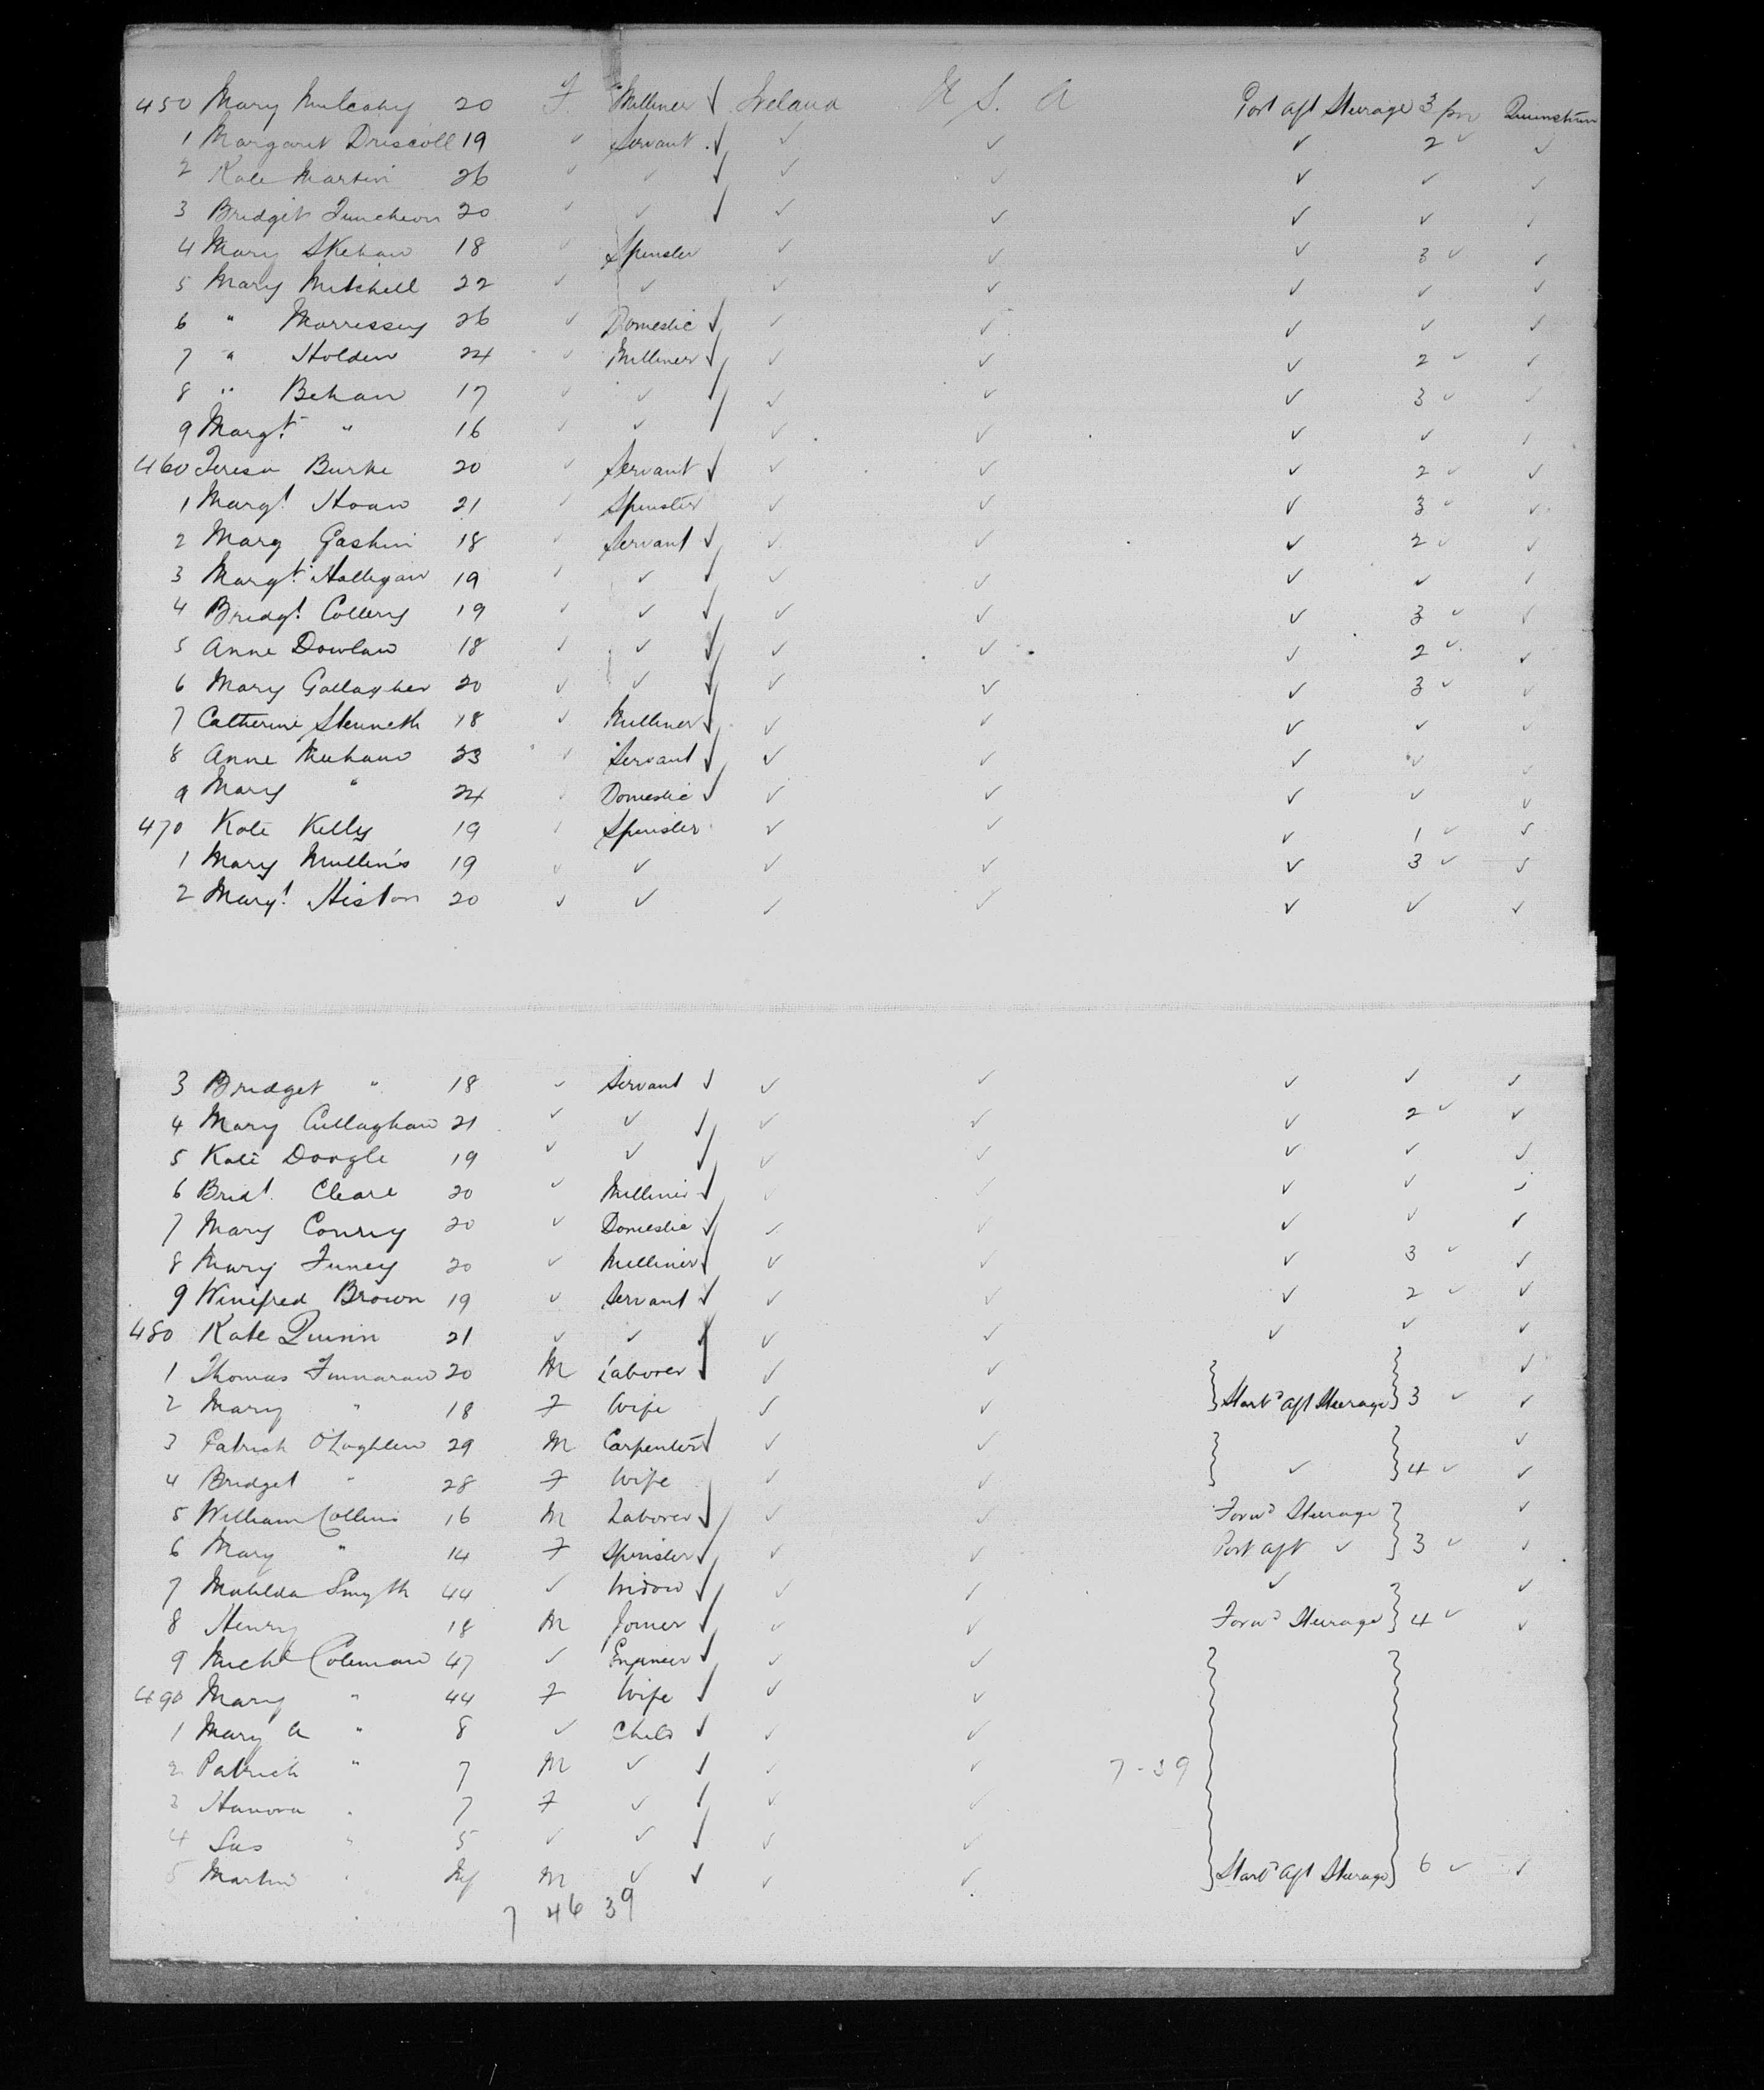 450 Mary Mulcahy 20 F. Milliner ✓ Ireland U S. A Port aft Steerage 3 pce Queenstown
1 Margaret Driscoll 19 ✓ Servant ✓ ✓ ✓ ✓ 2 ✓ ✓
2 Kate Martin 26 ✓ ✓ ✓ ✓ ✓ ✓ ✓ ✓
3 Bridget Luncheon 20 ✓ ✓ ✓ ✓ ✓ ✓ ✓ ✓
4 Mary Skehan 18 ✓ Spinster ✓ ✓ ✓ 3 ✓ ✓
5 Mary Mitchell 22 ✓ ✓ ✓ ✓ ✓ ✓ ✓
6 " Morrissey 26 ✓ Domestic ✓ ✓ ✓ ✓ ✓ ✓
7 " Holden 24 ✓ Milliner ✓ ✓ ✓ ✓ 2 ✓ ✓
8 " Behan 17 ✓ ✓ ✓ ✓ ✓ ✓ 3 ✓ ✓
9 Margt. " 16 ✓ ✓ ✓ ✓ ✓ ✓ ✓ ✓
460 Teresa Burke 20 ✓ Servant ✓ ✓ ✓ ✓ 2 ✓ ✓
1 Margt. Hoan 21 ✓ Spinster ✓ ✓ ✓ 3 ✓ ✓
2 Mary Gashin 18 ✓ Servant ✓ ✓ ✓ ✓ 2 ✓ ✓
3 Margt. Halligan 19 ✓ ✓ ✓ ✓ ✓ ✓ ✓ ✓
4 Bridgt. Collery 19 ✓ ✓ ✓ ✓ ✓ ✓ 3 ✓ ✓
5 Anne Dowlan 18 ✓ ✓ ✓ ✓ ✓ ✓ 2 ✓ ✓
6 Mary Gallagher 20 ✓ ✓ ✓ ✓ ✓ ✓ 3 ✓ ✓
7 Catherine 18 ✓ Milliner ✓ ✓ ✓ ✓ ✓ ✓
8 Anne Meehan 23 ✓ Servant ✓ ✓ ✓ ✓ ✓ ✓
9 Mary " 24 ✓ Domestic ✓ ✓ ✓ ✓ ✓ ✓
470 Kate Kelly 19 ✓ Spinster ✓ ✓ ✓ 1 ✓ ✓
1 Mary Mullins 19 ✓ ✓ ✓ ✓ ✓ 3 ✓ ✓
2 Margt. Histon 20 ✓ ✓ ✓ ✓ ✓ ✓ ✓
3 Bridget " 18 ✓ Servant ✓ ✓ ✓ ✓ ✓ ✓
4 Mary Cullaghan 21 ✓ ✓ ✓ ✓ ✓ ✓ 2 ✓ ✓
5 Kate Dangle 19 ✓ ✓ ✓ ✓ ✓ ✓ ✓ ✓
6 Bridt. Cleare 20 ✓ Milliner ✓ ✓ ✓ ✓ ✓ ✓
7 Mary Conry 20 ✓ Domestic ✓ ✓ ✓ ✓ ✓ ✓
8 Mary Funey 20 ✓ Milliner ✓ ✓ ✓ ✓ 3 ✓ ✓
9 Winifred Brown 19 ✓ Servant ✓ ✓ ✓ ✓ 2 ✓ ✓
480 Kate Quinn 21 ✓ ✓ ✓ ✓ ✓ ✓ ✓ ✓
1 Thomas Finnaran 20 M Laborer ✓ ✓ ✓ ✓
2 Mary " 18 F Wife ✓ ✓ Starbd aft Steerage 3 ✓ ✓
3 Patrick O'Loghlen 29 M Carpenter ✓ ✓ ✓ ✓
4 Bridget " 28 F Wife ✓ ✓ ✓ 4 ✓ ✓
5 William Collins 16 M Laborer ✓ ✓ ✓ Forwd Steerage ✓
6 Mary " 14 F Spinster ✓ ✓ ✓ Port aft ✓ 3 ✓ ✓
7 Matilda Smyth 44 ✓ Widow ✓ ✓ ✓ ✓ ✓
8 Henry 18 M Joiner ✓ ✓ ✓ Forwd Steerage 4 ✓ ✓
9 Michl Coleman 47 ✓ Engineer ✓ ✓ ✓
490 Mary " 44 F Wife ✓ ✓ ✓
1 Mary A " 8 ✓ Child ✓ ✓ ✓
2 Patrick " 7 M ✓ ✓ ✓ ✓ 7-39
3 Hanora " 7 F ✓ ✓ ✓ ✓
4 Sus " 5 ✓ ✓ ✓ ✓ ✓
5 Martin " Inf M ✓ ✓ ✓ ✓ Starbd aft Steerage 6 ✓ ✓
7 46 39